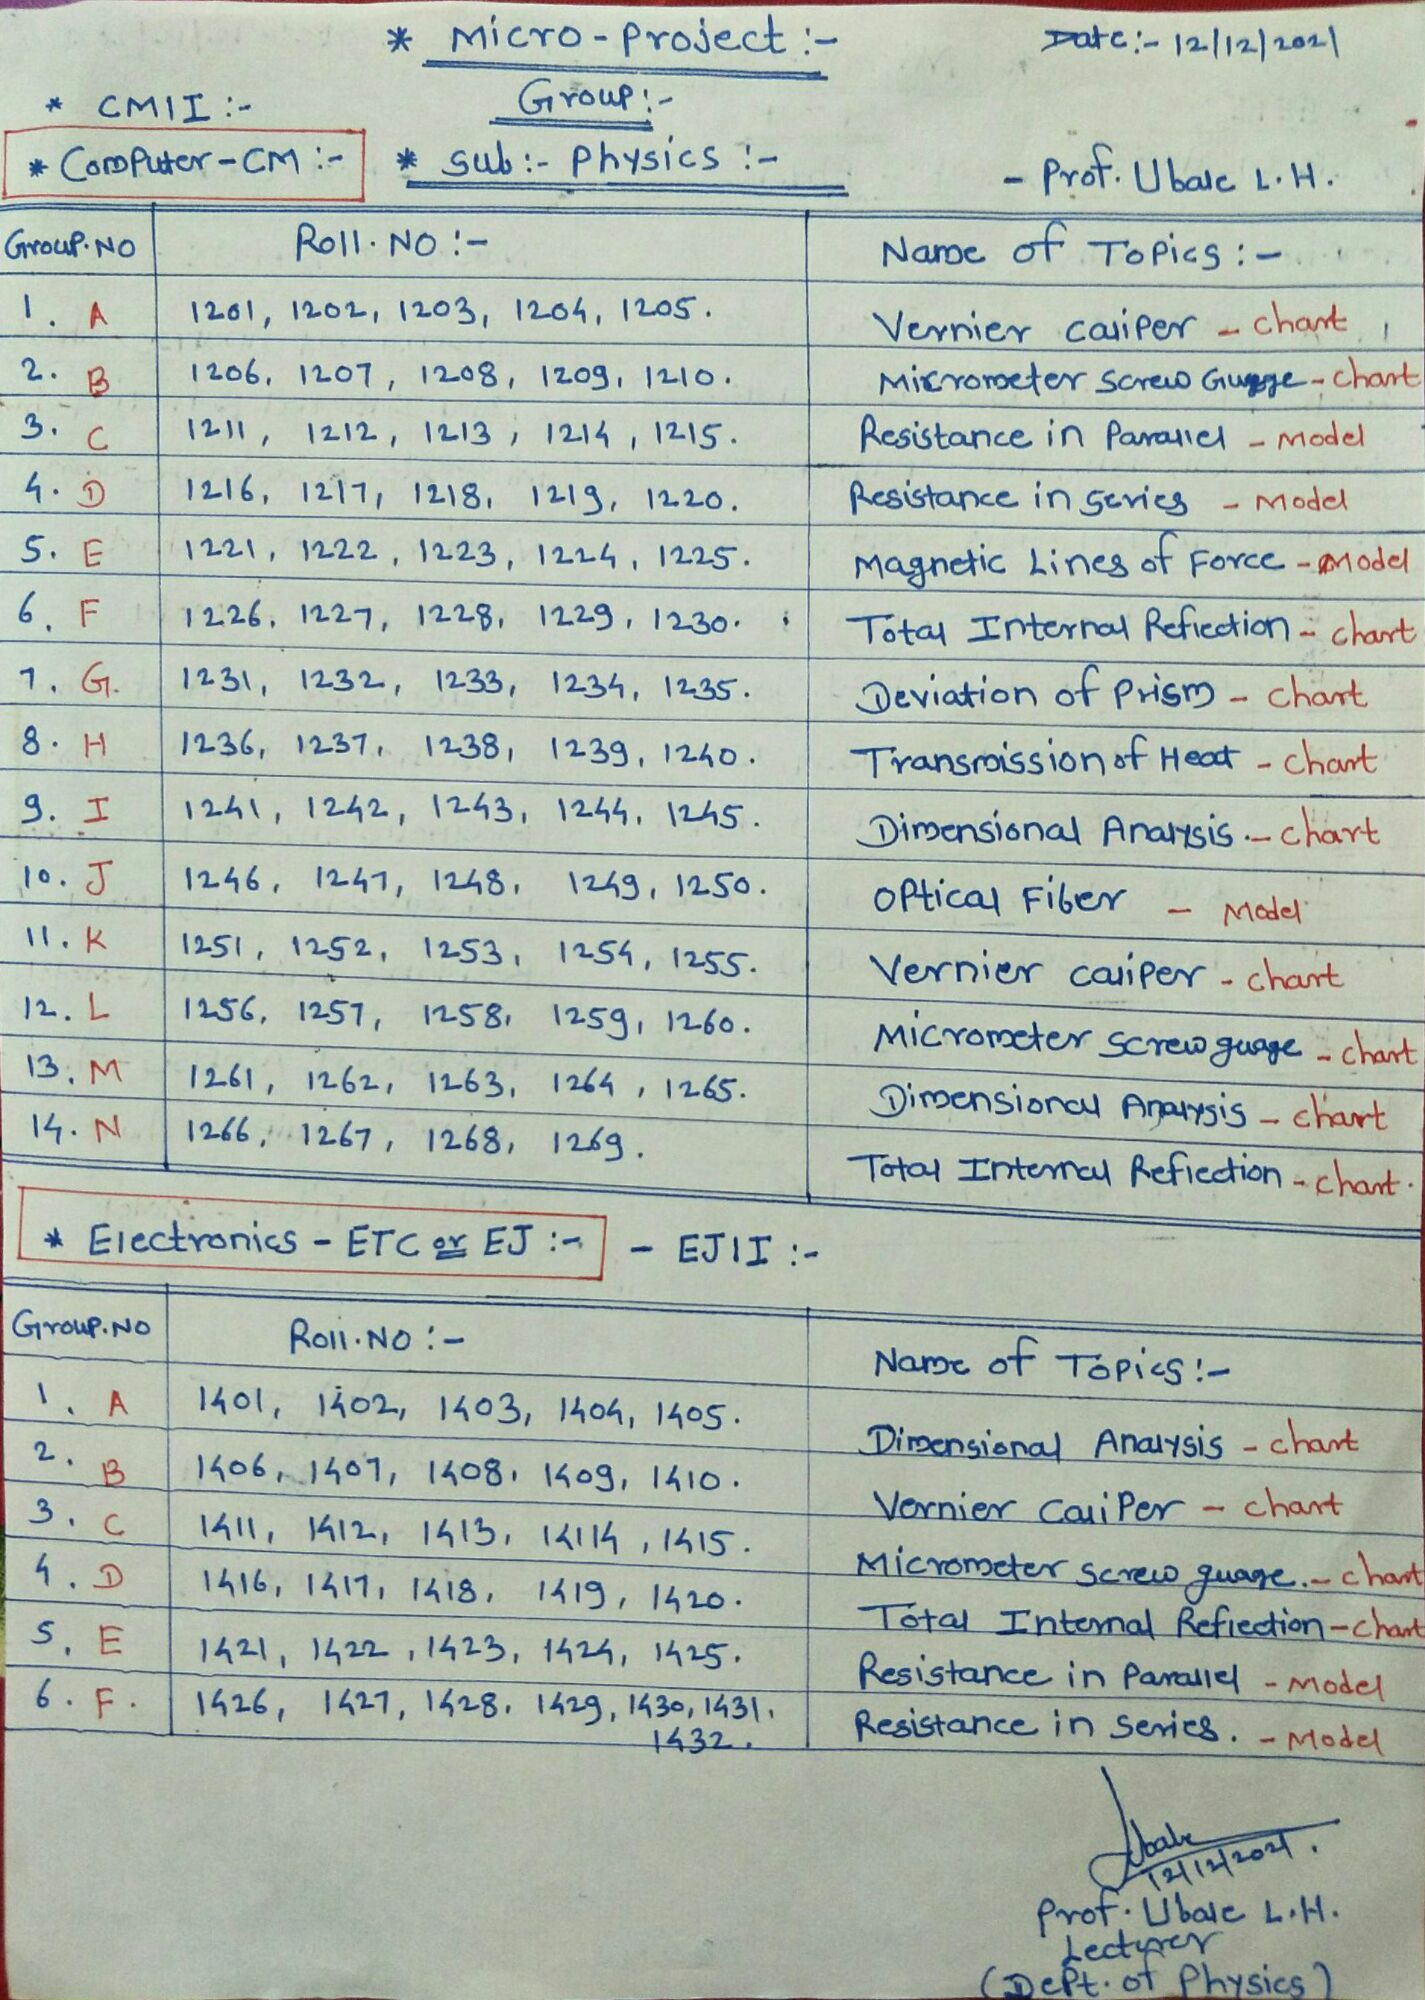 * Micro-Project :-
Date:- 12/12/2021
* CM1I :-
Group:-
* Computer-CM :-
* Sub:- Physics :-
- Prof. Ubale L.H.
Group.No Roll.No :- Name of Topics :-
1. A 1201, 1202, 1203, 1204, 1205. Vernier caliper - chart
2. B 1206, 1207, 1208, 1209, 1210. Micrometer screw Guage - chart
3. C 1211, 1212, 1213, 1214, 1215. Resistance in Parallel - Model
4. D 1216, 1217, 1218, 1219, 1220. Resistance in series - Model
5. E 1221, 1222, 1223, 1224, 1225. Magnetic Lines of Force - Model
6. F 1226, 1227, 1228, 1229, 1230. Total Internal Reflection - chart
7. G. 1231, 1232, 1233, 1234, 1235. Deviation of Prism - chart
8. H 1236, 1237, 1238, 1239, 1240. Transmission of Heat - chart
9. I 1241, 1242, 1243, 1244, 1245. Dimensional Analysis. - chart
10. J 1246, 1247, 1248, 1249, 1250. Optical Fiber - Model
11. K 1251, 1252, 1253, 1254, 1255. Vernier caliper - chart
12. L 1256, 1257, 1258, 1259, 1260. Micrometer screw guage - chart
13. M 1261, 1262, 1263, 1264, 1265. Dimensional Analysis - chart
14. N 1266, 1267, 1268, 1269. Total Internal Reflection - chart.
* Electronics - ETC or EJ :- - EJ1I :-
Group.No Roll.No :- Name of Topics :-
1. A 1401, 1402, 1403, 1404, 1405. Dimensional Analysis - chart
2. B 1406, 1407, 1408, 1409, 1410. Vernier caliper - chart
3. C 1411, 1412, 1413, 14114, 1415. Micrometer screw guage. - chart
4. D 1416, 1417, 1418, 1419, 1420. Total Internal Reflection - chart
5. E 1421, 1422, 1423, 1424, 1425. Resistance in Parallel - Model
6. F. 1426, 1427, 1428, 1429, 1430, 1431, Resistance in series. - Model
1432.
Ubale
12/12/2021.
Prof. Ubale L.H.
Lecturer
(Dept. of Physics)